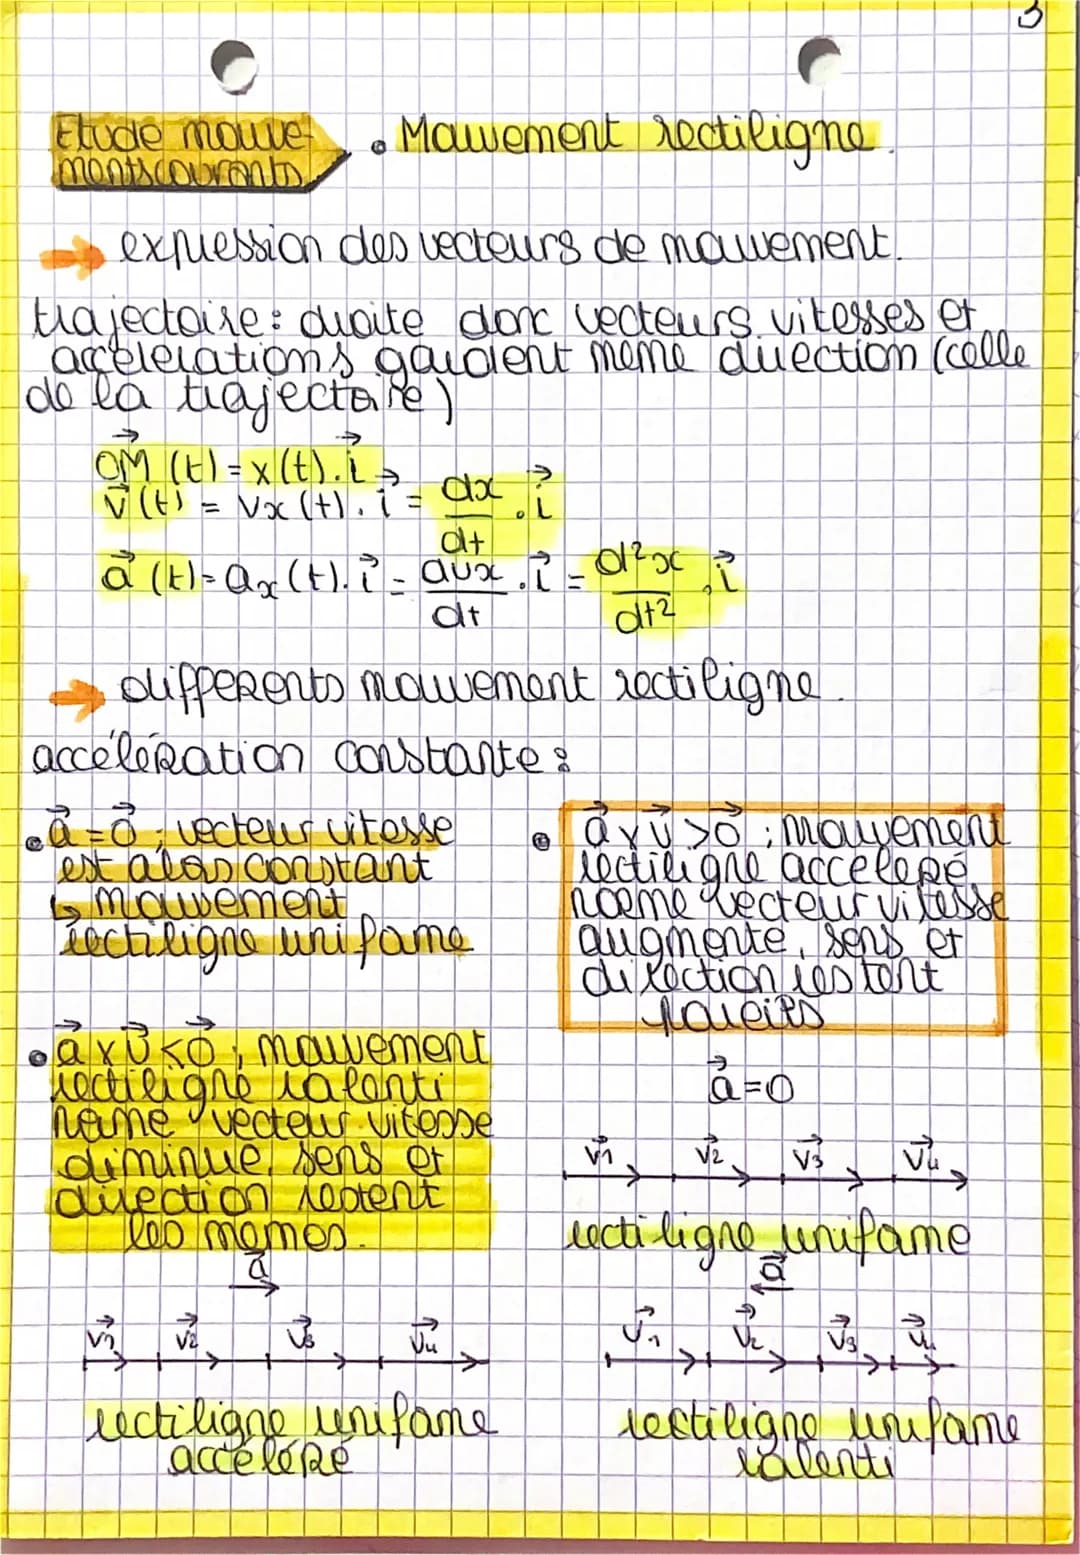 3
Etude mouve-
ments courants
• Mouvement rectiligne.
→ expression des vecteurs de mouvement.
trajectoire : droite donc vecteurs vitesses et
accélerations gardent meme direction (celle
de la trajectoire)
OM⃗ (t) = x(t).i⃗
v⃗(t) = vx(t).i⃗ = dx/dt .i⃗
a⃗ (t) = ax(t).i⃗ = dvx/dt .i⃗ = d²x/dt² .i⃗
→ differents mouvement rectiligne.
accélération constante :
• a⃗ = 0⃗ ; vecteur vitesse
est alors constant
↳ mouvement
rectiligne uniforme
• a⃗ x v⃗ > 0⃗ ; mouvement
rectiligne acceleré
norme vecteur vitesse
augmente, sens et
direction restent
pareils
• a⃗ x v⃗ < 0⃗ ; mouvement
rectiligne ralenti
norme vecteur vitesse
diminue, sens et
direction restent
les memes.
a⃗=0
v⃗1 v⃗2 v⃗3 v⃗4
rectiligne uniforme
a⃗
v⃗1 v⃗2 v⃗3 v⃗4
rectiligne uniforme
accéléré
a⃗
v⃗1 v⃗2 v⃗3 v⃗4
rectiligne uniforme
ralenti